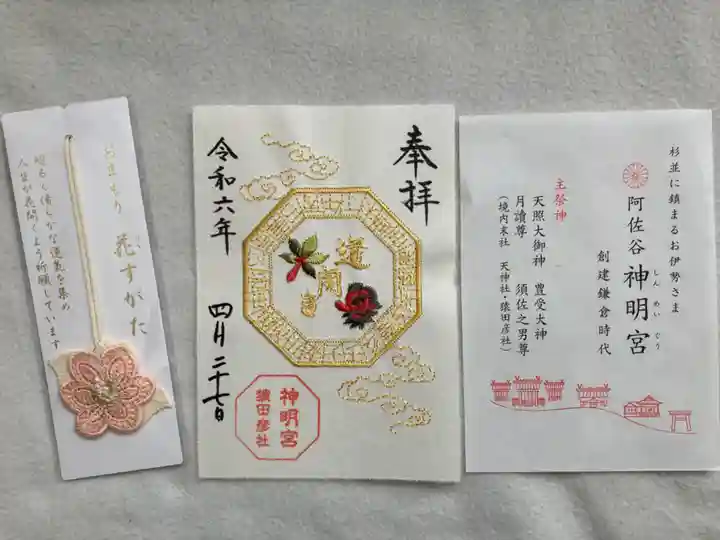 おまもり
花すがた
明るく清らかな運気を集め
人生が花開くよう祈願しています
奉拝
道開き
令和六年 四月二十七日
神明宮
猿田彦社
杉並に鎮まるお伊勢さま
阿佐谷神明宮
しんめいぐう
創建鎌倉時代
主祭神
天照大御神 豊受大神
月讀尊 須佐之男尊
(境内末社 天神社・猿田彦社)